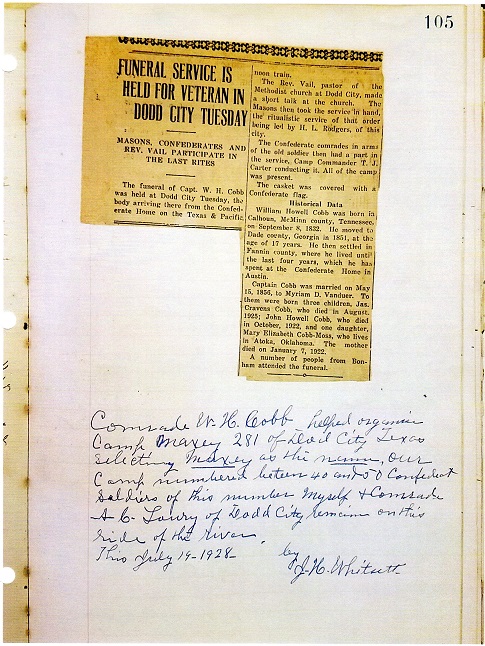 105
FUNERAL SERVICE IS
HELD FOR VETERAN IN
DODD CITY TUESDAY
MASONS, CONFEDERATES AND
REV. VAIL PARTICIPATE IN
THE LAST RITES
The funeral of Capt. W. H. Cobb
was held at Dodd City Tuesday, the
body arriving there from the Confed-
erate Home on the Texas & Pacific
noon train.
The Rev. Vail, pastor of the
Methodist church at Dodd City, made
a short talk at the church. The
Masons then took the service in hand,
the ritualistic service of that order
being led by H. L. Rodgers, of this
city.
The Confederate comrades in arms
of the old soldier then had a part in
the service, Camp Commander T. J.
Carter conducting it. All of the camp
was present.
The casket was covered with a
Confederate flag.
Historical Data
William Howell Cobb was born in
Calhoun, McMinn county, Tennessee,
on September 8, 1832. He moved to
Dade county, Georgia in 1851, at the
age of 17 years. He then settled in
Fannin county, where he lived until
the last four years, which he has
spent at the Confederate Home in
Austin.
Captain Cobb was married on May
15, 1856, to Myriam D. Vanduer. To
them were born three children, Jas.
Cravens Cobb, who died in August,
1925; John Howell Cobb, who died
in October, 1922, and one daughter,
Mary Elizabeth Cobb-Moss, who lives
in Atoka, Oklahoma. The mother
died on January 7, 1922.
A number of people from Bon-
ham attended the funeral.
Comrade W. H. Cobb helped organise
Camp Maxey 281 of Dodd City Texas
Selecting Maxey as the name, our
Camp numbered beteen 40 and 50 Confederat
Soldiers of this number Myself & Comrade
A C. Lowry of Dodd City remain on this
side of the River.
This July 19-1928- by
J. H. Whitsett